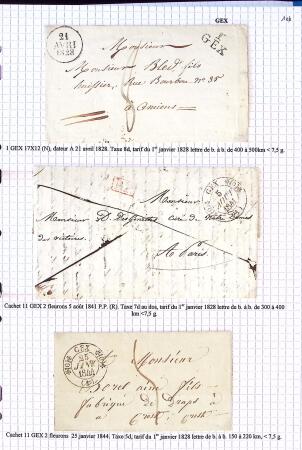 GEX
21
AVRI
1828
1
GEX
Monsieur
Monsieur Bled fils
huissier, Rue Bourbon N° 35
à Amiens
8
1 GEX 17X12 (N), dateur A 21 avril 1828. Taxe 8d, tarif du 1er janvier 1828 lettre de b. à b. de 400 à 500km < 7,5 g.
P.P.
GEX
5
1841
Monsieur
Monsieur curé de Notre Dame
des victoires.
A Paris
Cachet 11 GEX 2 fleurons 5 août 1841 P.P. (R). Taxe 7d au dos, tarif du 1er janvier 1828 lettre de b. à b. de 300 à 400
km <7,5 g.
GEX
25
JANV
1844
Monsieur
fils
fabrique de Draps à
à Crest
Cachet 11 GEX 2 fleurons 25 janvier 1844. Taxe 5d, tarif du 1er janvier 1828 lettre de b. à b. 150 à 220 km, < 7,5 g.